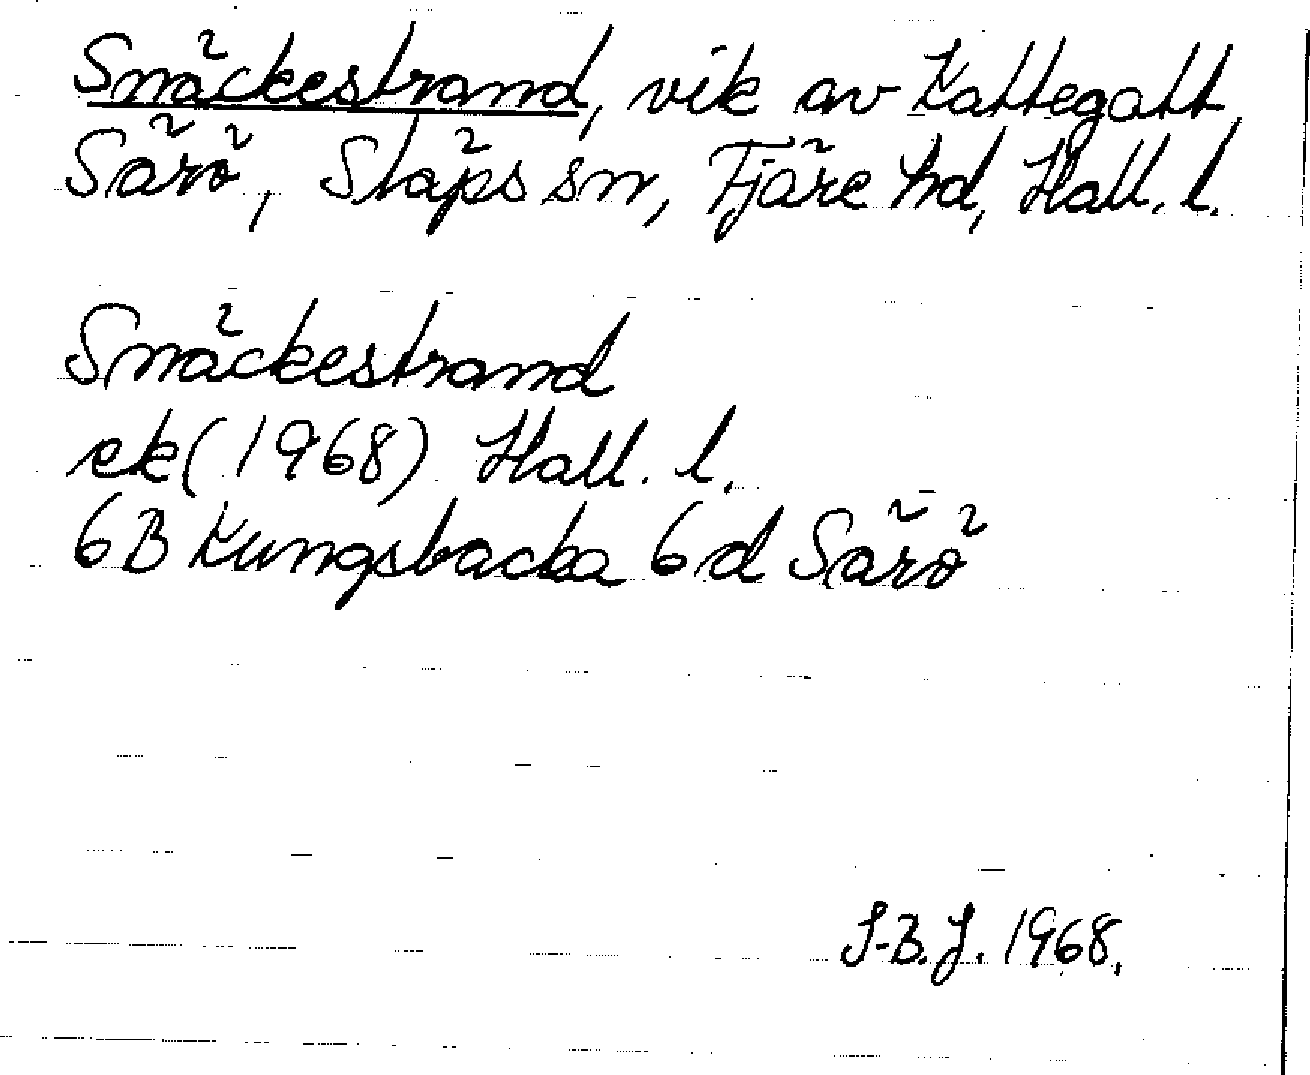 Snäckestrand, vik av Kattegatt,
Särö, Släps sn, Fjäre hd, Hall. l.
Snäckestrand
ek (1968) Hall. l.
6B Kungsbacka 6d Särö
I-B.J. 1968.